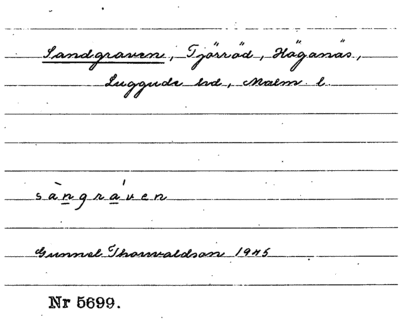 Sandgraven, Tjörröd, Höganäs,
Luggude hd, Malm. l.
sàn̲gra̲´ven
Gunnel Thorvaldson 1945
Nr 5699.